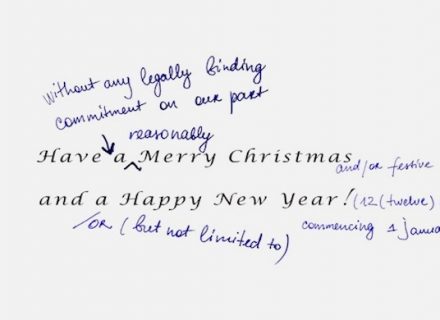 without any legally binding
commitment on our part
reasonably
Have a Merry Christmas
and/or festive
and a Happy New Year!
(12 (twelve)
/or (but not limited to)
commencing 1 Janua